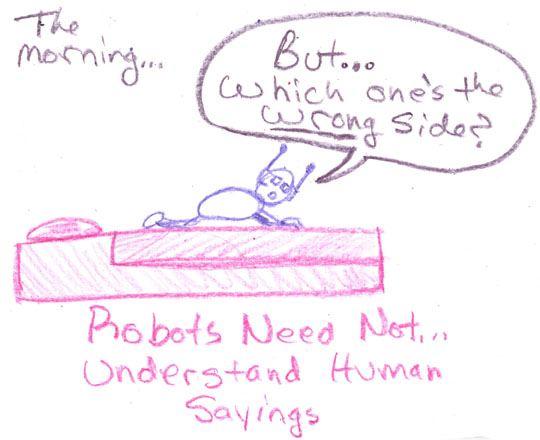 The
morning...
But...
Which one's the
wrong side?
Robots Need Not...
Understand Human
Sayings